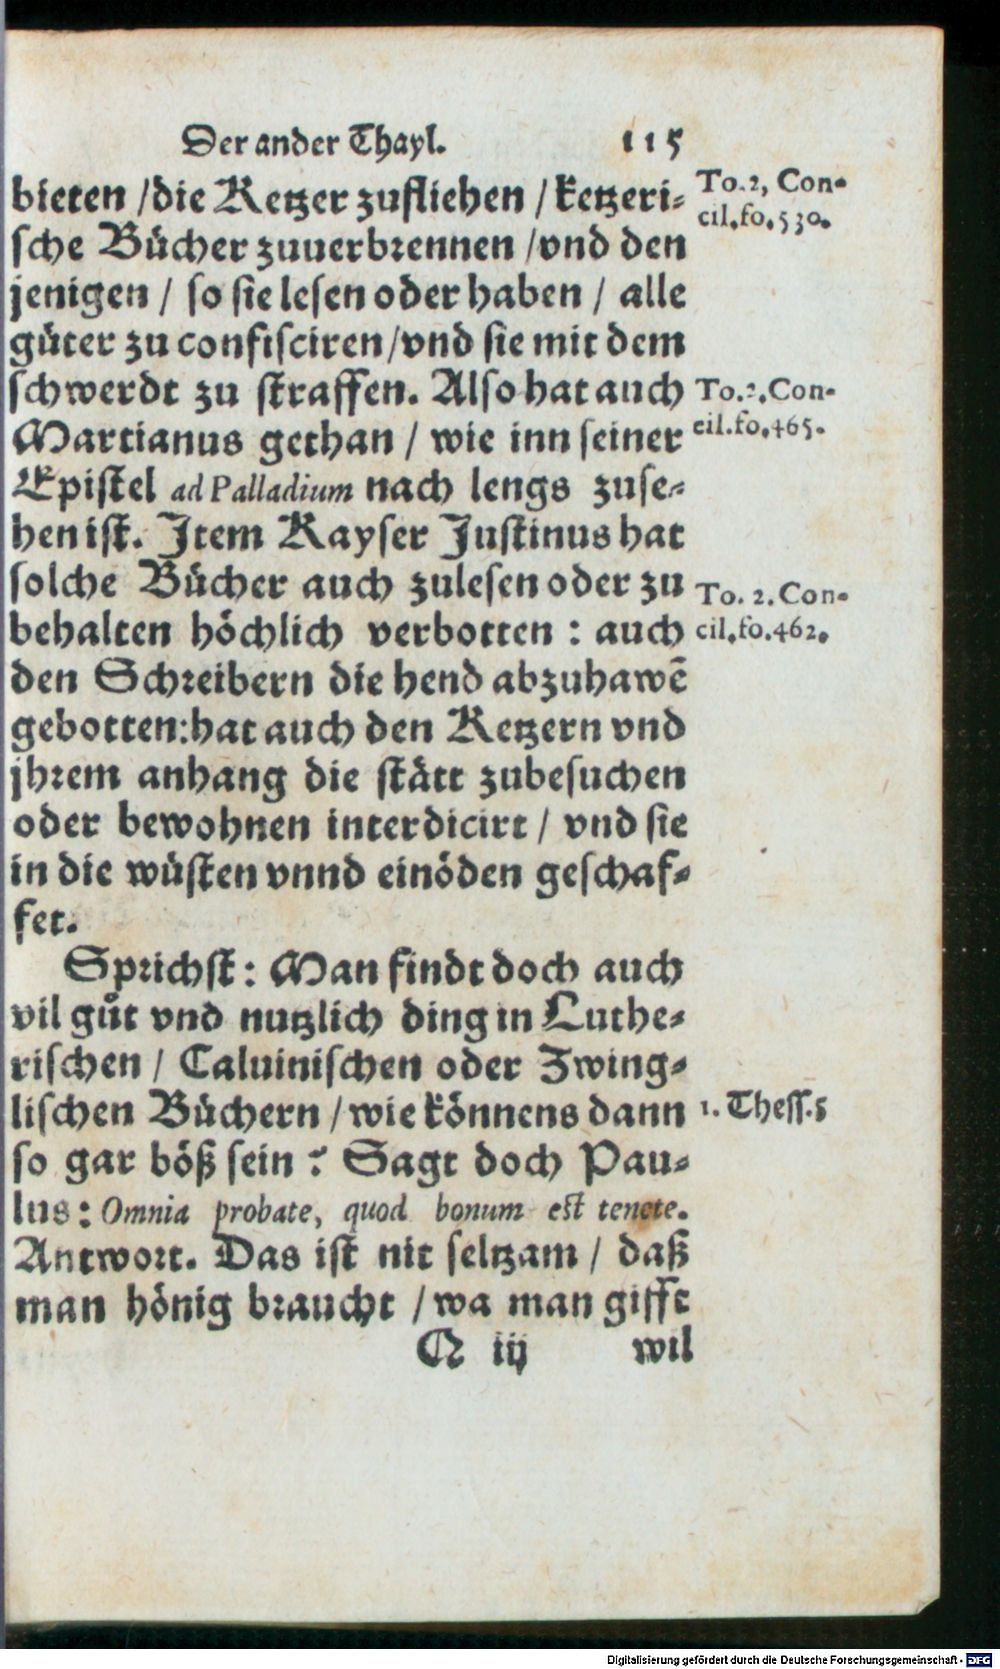 Der ander Thayl. 115
bieten / die Ketzer zufliehen / ketzeri-
sche Bücher zuuerbrennen / vnd den
jenigen / so sie lesen oder haben / alle
güter zu confisciren / vnd sie mit dem
schwerdt zu straffen. Also hat auch
Martianus gethan / wie inn seiner
Epistel ad Palladium nach lengs zuse-
hen ist. Item Kayser Justinus hat
solche Bücher auch zulesen oder zu
behalten höchlich verbotten : auch
den Schreibern die hend abzuhawẽ
gebotten: hat auch den Ketzern vnd
jhrem anhang die stätt zubesuchen
oder bewohnen interdicirt / vnd sie
in die wüsten vnnd einöden geschaf-
fet.
Sprichst: Man findt doch auch
vil gůt vnd nutzlich ding in Luthe-
rischen / Caluinischen oder Zwing-
lischen Büchern / wie könnens dann
so gar böß sein ? Sagt doch Pau-
lus: Omnia probate, quod bonum est tenete.
Antwort. Das ist nit seltzam / daß
man hönig braucht / wa man gifft
Q iij wil
To.2, Con-
cil.fo.530.
To.2.Con-
cil.fo.465.
To. 2. Con-
cil.fo.462.
1. Thess.5
Digitalisierung gefördert durch die Deutsche Forschungsgemeinschaft - DFG